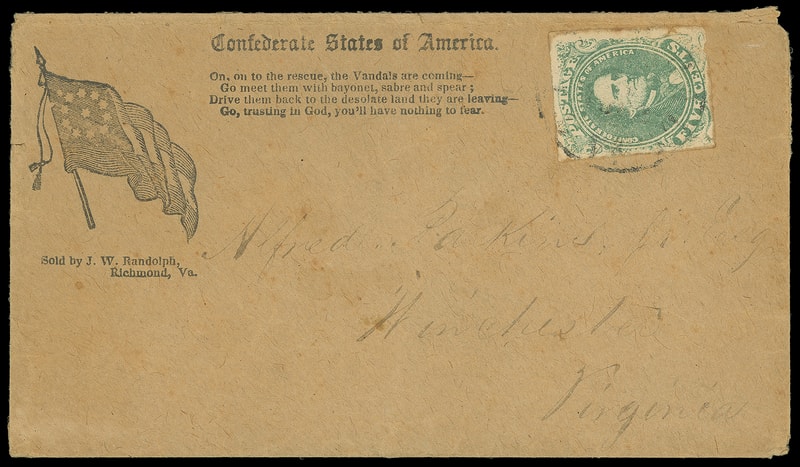 Confederate States of America.
On, on to the rescue, the Vandals are coming—
Go meet them with bayonet, sabre and spear;
Drive them back to the desolate land they are leaving—
Go, trusting in God, you'll have nothing to fear.
POSTAGE
CONFEDERATE STATES OF AMERICA
FIVE
Sold by J. W. Randolph,
Richmond, Va.
Alfred
Winchester
Virginia